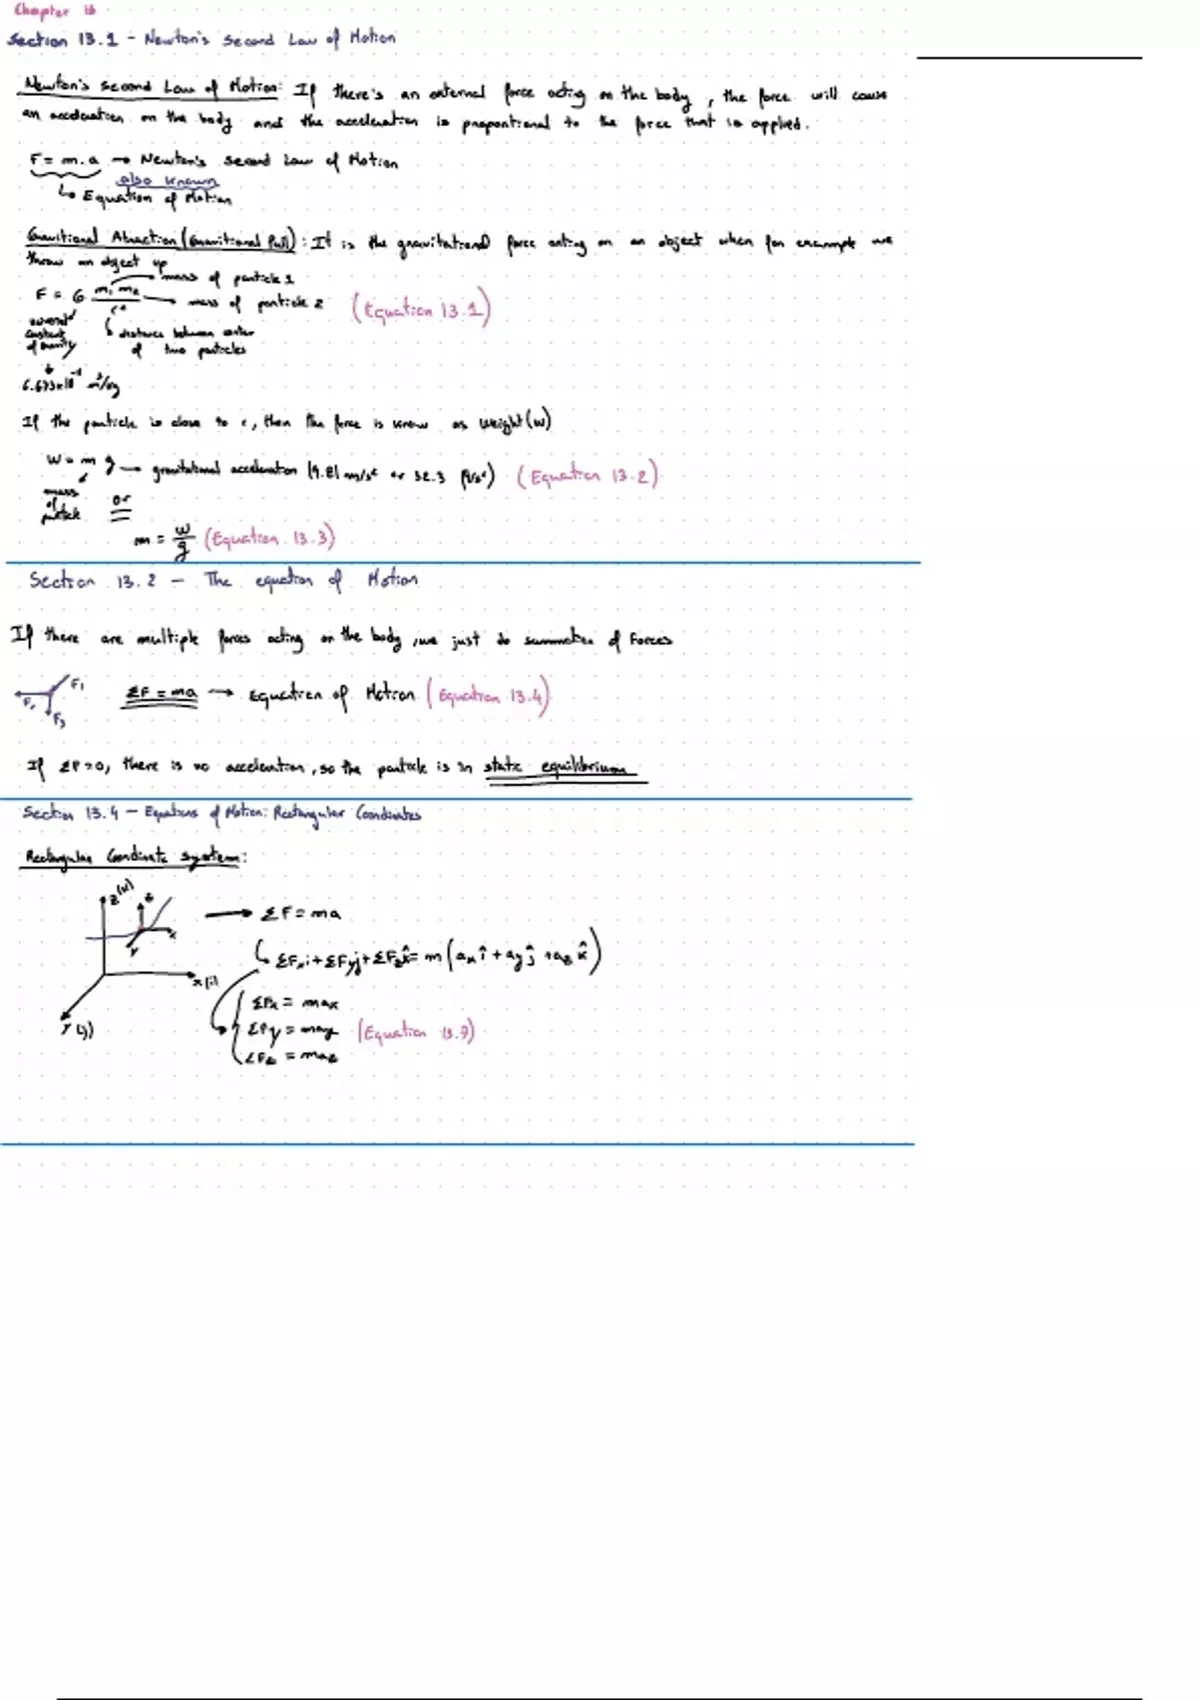 Chapter 13
Section 13.1 - Newton's Second Law of Motion
Newton's second Law of Motion: If there's an external force acting on the body, the force will cause
an acceleration on the body and the acceleration is propontional to the force that is applied.
F = m.a → Newton's second Law of Motion
also known
↳ Equation of Motion
Gravitional Atraction (Gravitional Pull): It is the gravitational force acting on an object when for example we
throw an object up
mass of particle 1
F = G m₁ m₂ / r² → mass of particle 2 (Equation 13.1)
constant of gravity
distance between center
of two particles
m³/kg
If the particle is close to, then the force is know as weight (W)
W = m g → gravitational acceleration (9.81 m/s² or 32.3 ft/s²) (Equation 13.2)
mass
of
particle
or
m = W/g (Equation 13.3)
Section 13.2 - The equation of Motion
If there are multiple forces acting on the body, we just do summation of Forces
F₁
F₂
F₃
ΣF = ma → Equation of Motion (Equation 13.4)
If ΣF=0, there is no acceleration, so the particle is in static equilibrium
Section 13.4 - Equations of Motion: Rectangular Coordinates
Rectangular Coordinate system:
z
x
y
z (k)
x (i)
y (j)
→ ΣF = ma
↳ ΣFxi + ΣFyj + ΣFzk̂ = m(ax î + ay ĵ + az k̂)
ΣFx = max
ΣFy = may (Equation 13.7)
ΣFz = maz